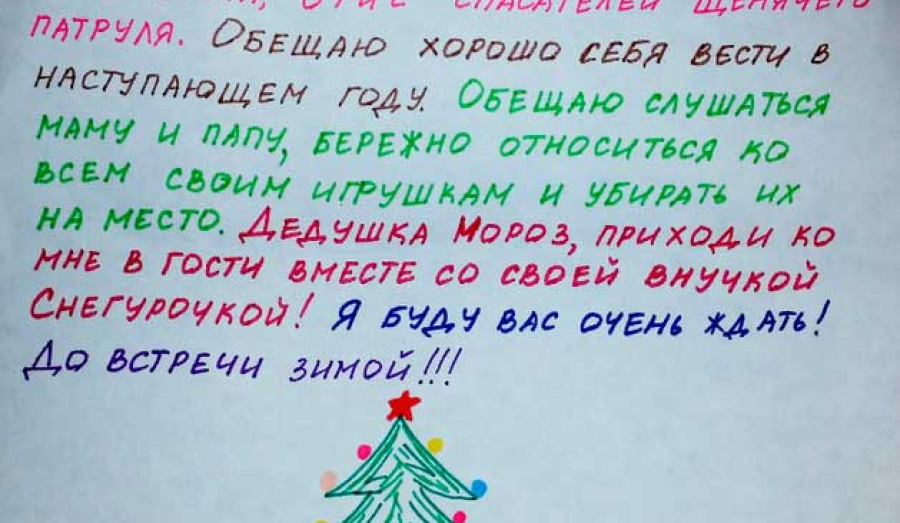 спасателей щенячего
патруля. Обещаю хорошо себя вести в
наступающем году. Обещаю слушаться
маму и папу, бережно относиться ко
всем своим игрушкам и убирать их
на место. Дедушка Мороз, приходи ко
мне в гости вместе со своей внучкой
Снегурочкой! Я буду вас очень ждать!
До встречи зимой!!!